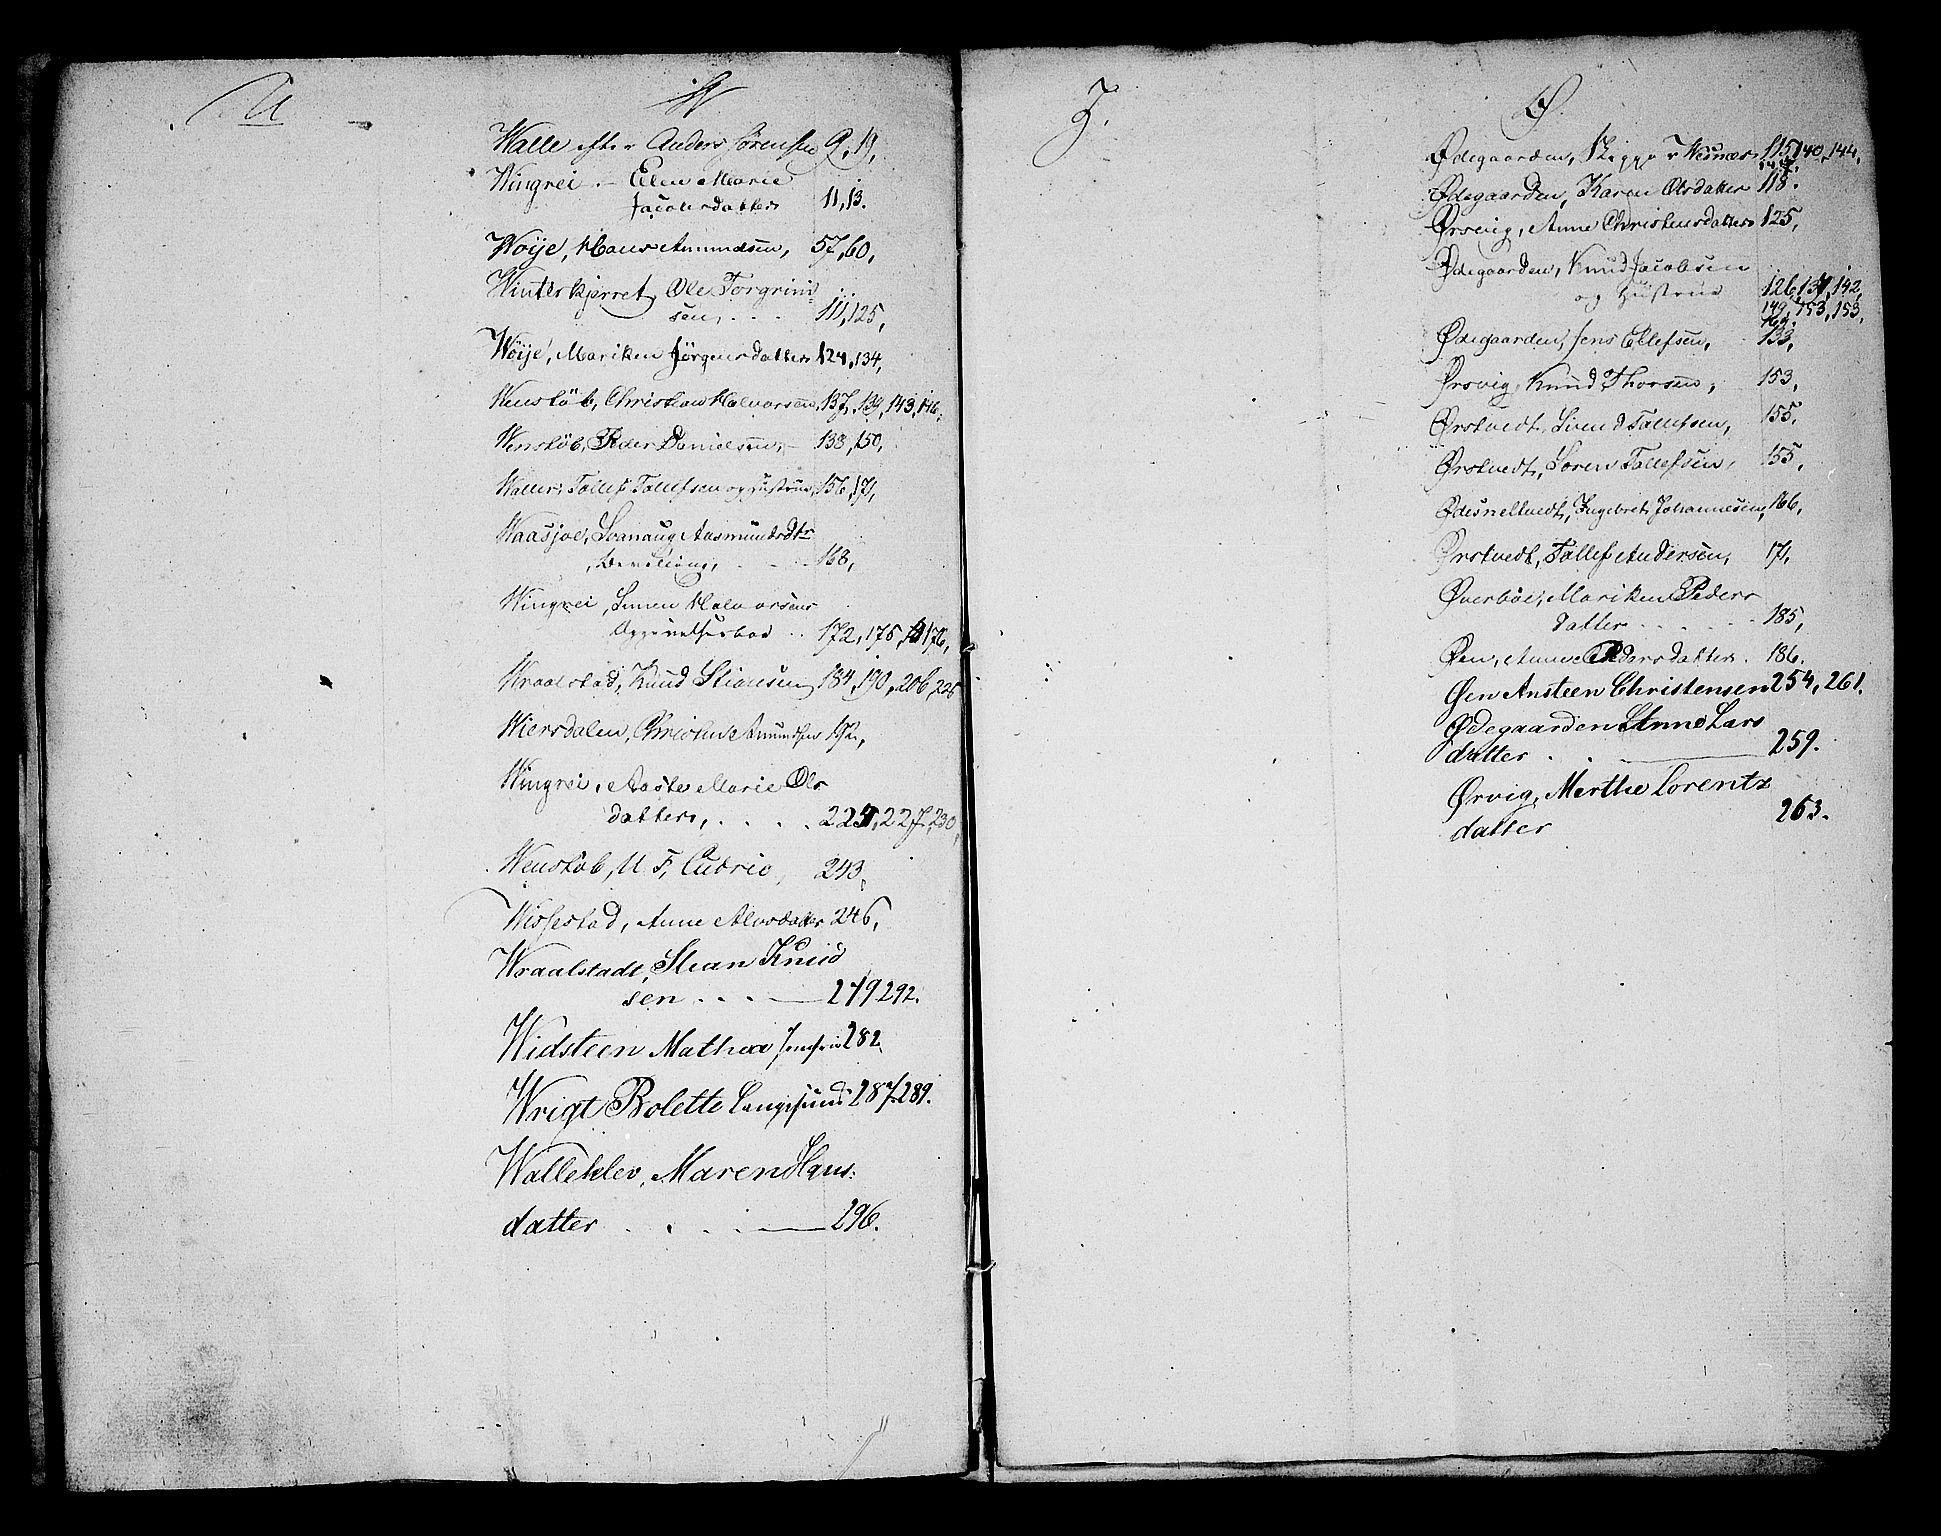 U
W
Walle efter Anders Sørensen 9, 19,
Wingrei - Elen Marie
Jacobsdatter 11, 13.
Woije, Hans Amundsen, 57, 60,
Winterkjerret, Ole Torgrim
sen, . . . 111, 125,
Woije, Mariken Jörgensdatter 124, 134,
Wenstöb, Christian Halvorsen, 137, 139, 143, 146.
Wenstöb, Peder Danielsen, - 138, 150,
Waller, Tollef Tollefsen og Hustrue, 156, 171,
Waasjoe, Svanaug Aasmundsdtr
168,
Wingrei, Simen Halvorsens
172, 175, 176,
Wraalstad, Knud Stiansen, 184, 190, 206, 225
Wiersdalen, Christine Amundsen 192,
Wingrei, Aaste Marie Ols
datter, . . . . 225, 227, 230,
Wenstöb, U. F. Cudrio, 243,
Wissestad, Anne Alvsdatter 246,
Wraalstadt, Stian Knud
sen . . . 279 292.
Widsteen Mathea 282.
Wrigt Bolette Langesund 287. 289.
Walleklev, Maren Hans.
datter . . . . 296.
Z.
Ø.
Ødegaarden, 115, 140, 144,
147.
Ødegaarden, Karen Olsdatter 118.
Ørsvig, Anne Christensdatter 125,
Ødegaarden, Knud Jacobsen
og Hustrue 126, 137, 142,
149, 153, 153,
169.
Ødegaarden, Jens Ellefsen, 133,
Ørsvig, Knud Thorsen, 153,
Ørstvedt, Sivend Tallefsen, 155.
Ørstvedt, Soren Tallefsen, 155,
Ødesneltvedt, Ingebret Johannesen, 166,
Ørstvedt, Tallef Andersen, 171,
Øverböe, Mariken Peders
datter . . . . . . 185,
Øen, Anne Pedersdatter. 186.
Øen Ansteen Christensen 254, 261.
Ødegaarden Anne Lars
datter . . 259.
Ørvig, Merthe Lorentz
datter 263.